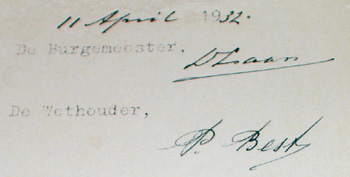 11 April 1932.
De Burgemeester,
De Wethouder,
P. Best